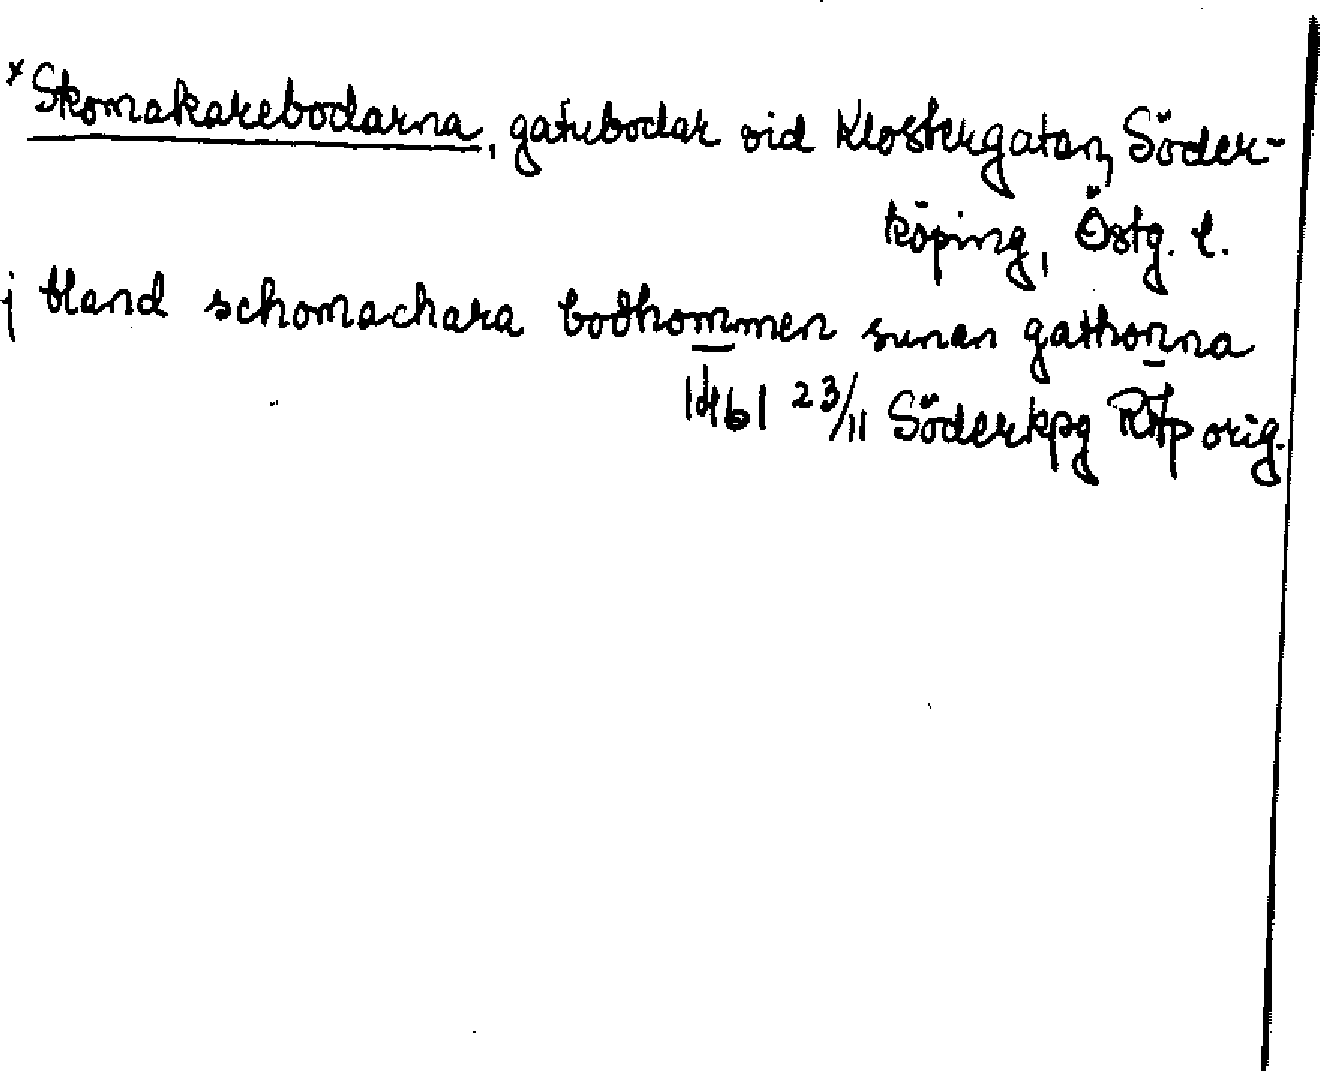 *Skomakarebodarna, gatubodar vid Klostergatan, Söder-
köping, Östg. l.
j bland schomachara bodhommen sunan gathonna
1461 23/11 Söderkpg RAp orig.